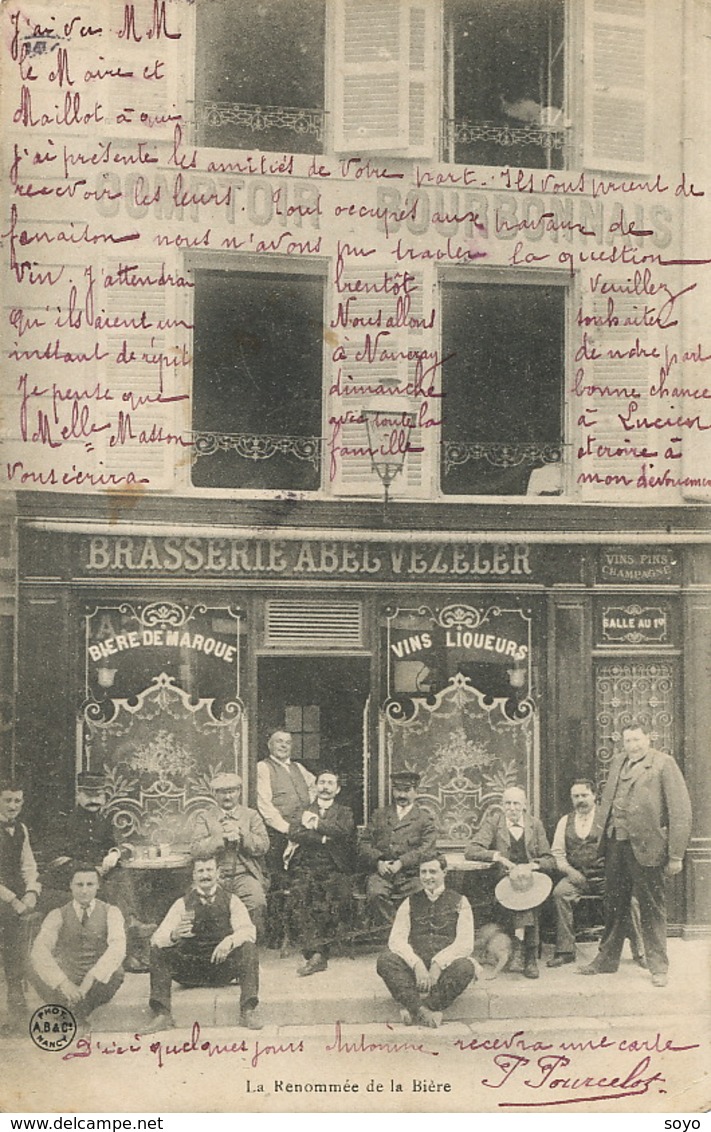 J'ai vu MM
le Maire et
Maillot à qui
j'ai présenté les amitiés de votre part. Ils vous prient de
recevoir les leurs. Tout occupés aux travaux de
COMPTOIR BOURBONNAIS
fenaison nous n'avons pu traiter la question
vin. J'attendrai bientôt Veuillez
qu'ils aient un Nous allons souhaiter
instant de répit à Nancray de notre part
Je pense que dimanche bonne chance
Melle Masson avec toute la à Lucien
vous écrira famille et croire à
mon dévouement
BRASSERIE ABEL VEZELER
VINS FINS
CHAMPAGNE
BIÈRE DE MARQUE
VINS LIQUEURS
SALLE AU 1er
PHOT
A.B & Cie
NANCY
D'ici quelques jours Antonine recevra une carte
P Pourcelot
La Renommée de la Bière
soyo